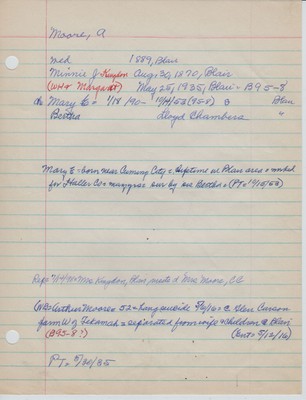 Moore, A
ned 1889, Blair
Minnie J. Kingdon Aug 30, 1870, Blair
(WH & Margaret) May 25, 1935, Blair - B95-8
ch Mary E = 1/18/90 - 10/14/53 (95-8) B Blair
Bertha Lloyd Chambers "
Mary E = born near Cuming City = lifetime in Blair area = worked
for Haller Co = many yrs sur by sis Bertha = (PT = 10/15/53)
Mrs Kingdon, Blair Mrs Moore,
(WBG Arthur Moore = 52 = hang suicide = C. Glen Carson
farm W of Tekamah = separated from wife & children @ Blair
(B95-8?) (Ent = 5/12/16)
PT =